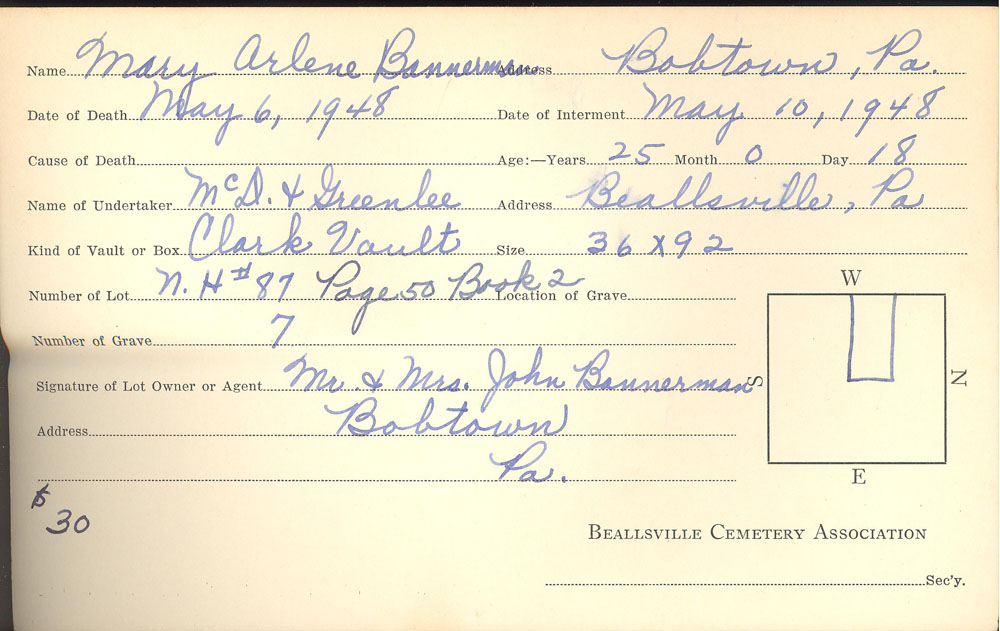 Name Mary Arlene Bannerman Address Bobtown, Pa.
Date of Death May 6, 1948 Date of Interment May 10, 1948
Cause of Death Age:—Years 25 Month 0 Day 18
Name of Undertaker McD. & Greenlee Address Beallsville, Pa
Kind of Vault or Box Clark Vault Size 36 x 92
Number of Lot N. H # 87 Page 50 Book 2 Location of Grave
W
Number of Grave 7
Signature of Lot Owner or Agent Mr. & Mrs. John Bannerman
S N
Address Bobtown
Pa.
E
$ 30
BEALLSVILLE CEMETERY ASSOCIATION
Sec'y.